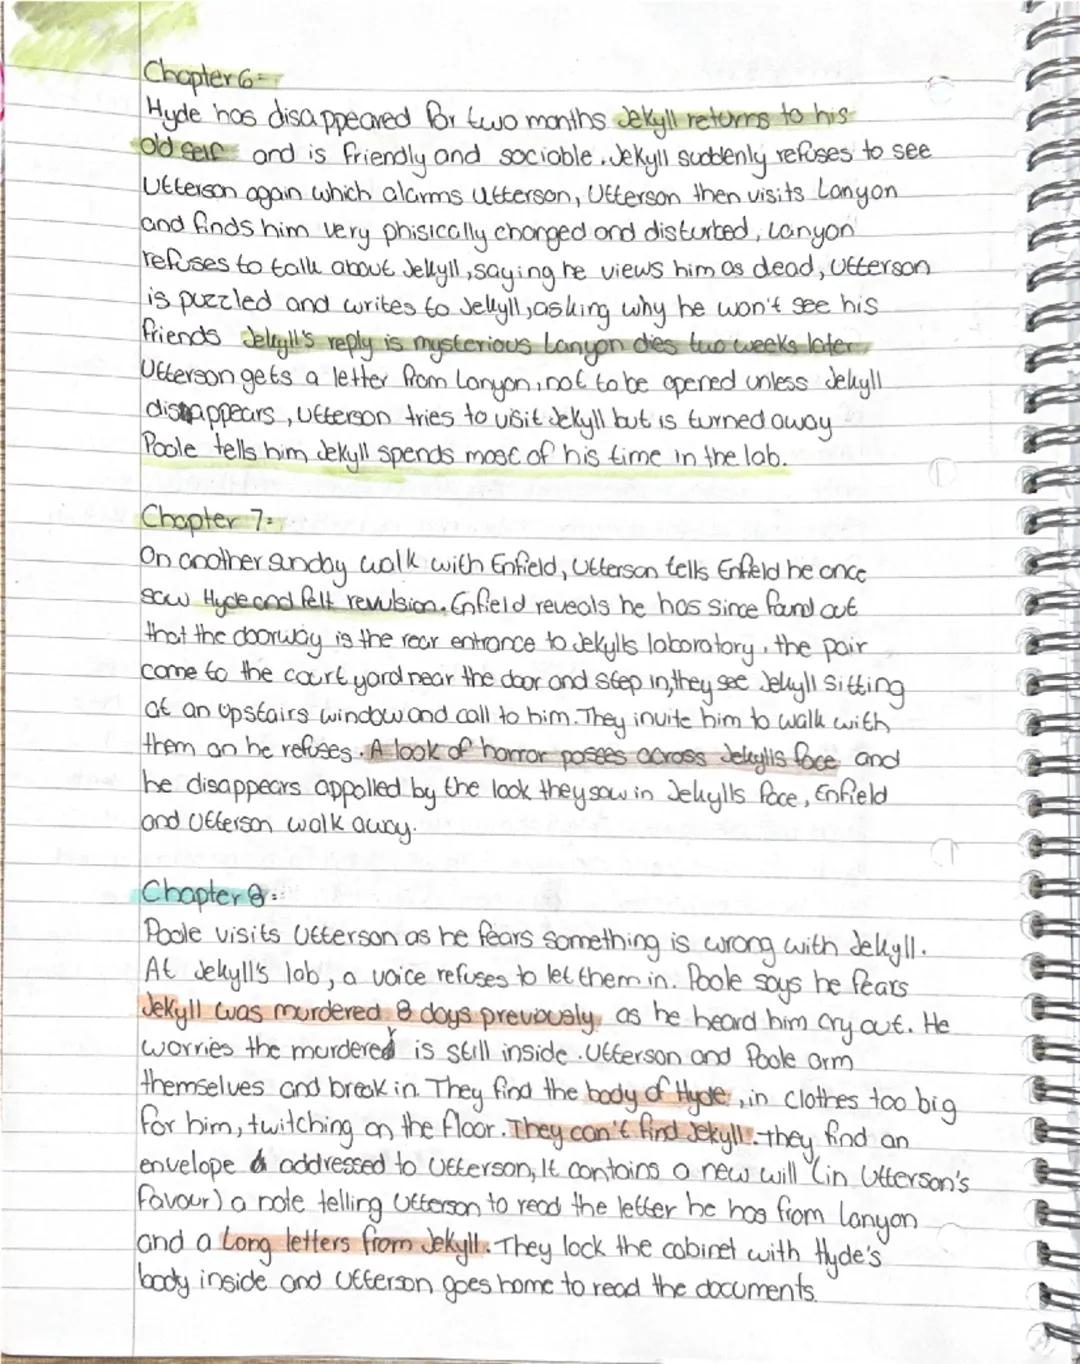 Chapter 6=
Hyde has disappeared for two months Jekyll returns to his
old self and is friendly and sociable. Jekyll suddenly refuses to see
Utterson again which alarms Utterson, Utterson then visits Lanyon
and finds him very phisically changed and disturbed, Lanyon
refuses to talk about Jekyll, saying he views him as dead, Utterson
is puzzled and writes to Jekyll, asking why he won't see his
friends Jekyll's reply is mysterious Lanyon dies two weeks later
Utterson gets a letter from Lanyon, not to be opened unless Jekyll
disappears, Utterson tries to visit Jekyll but is turned away
Poole tells him Jekyll spends most of his time in the lab.
Chapter 7=
On another sunday walk with Enfield, Utterson tells Enfield he once
saw Hyde and felt revulsion. Enfield reveals he has since found out
that the doorway is the rear entrance to Jekylls laboratory, the pair
come to the court yard near the door and step in, they see Jekyll sitting
at an upstairs window and call to him. They invite him to walk with
them an he refuses. A look of horror passes across Jekylls face and
he disappears appalled by the look they saw in Jekylls face, Enfield
and Utterson walk away.
Chapter 8=
Poole visits Utterson as he fears something is wrong with Jekyll.
At Jekyll's lab, a voice refuses to let them in. Poole says he fears
Jekyll was murdered 8 days previously, as he heard him cry out. He
worries the murderer is still inside. Utterson and Poole arm
themselves and break in. They find the body of Hyde, in clothes too big
for him, twitching on the floor. They can't find Jekyll. they find an
envelope addressed to Utterson, It contains a new will (in Utterson's
favour) a note telling Utterson to read the letter he has from Lanyon
and a long letters from Jekyll. They lock the cabinet with Hyde's
body inside and Utterson goes home to read the documents.